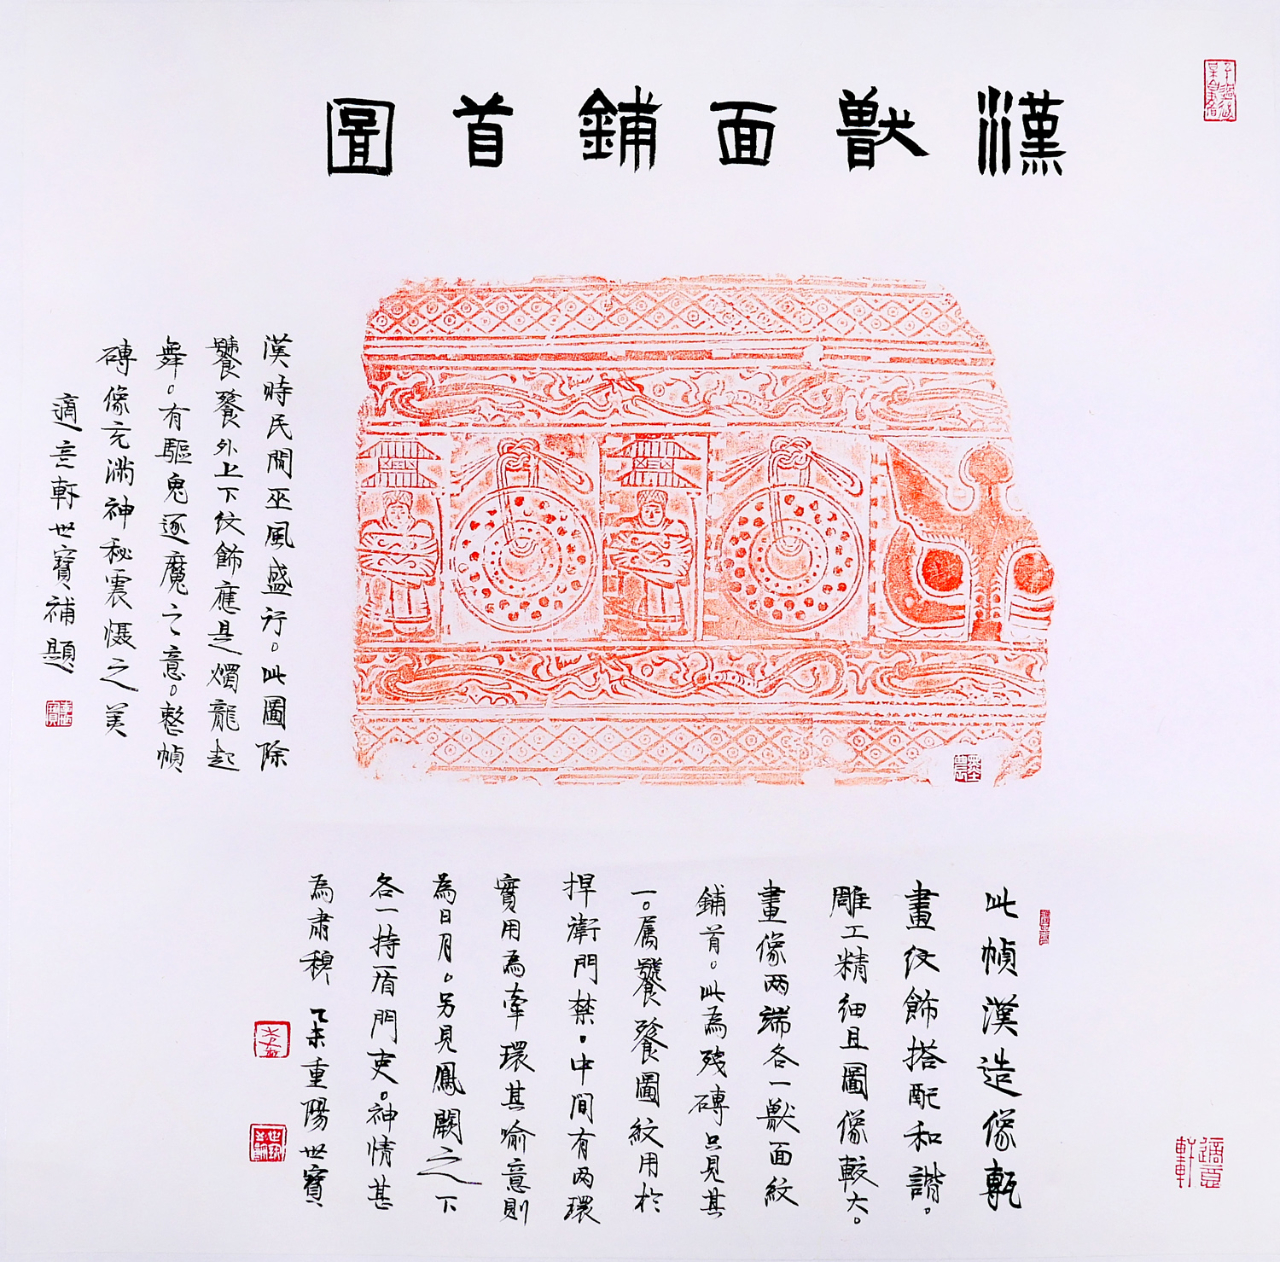 漢獸面鋪首圖
此幀漢造像甎
畫紋飾搭配和諧。
雕工精細且圖像較大。
畫像两端各一獸面紋
鋪首。此為殘磚只見其
一。属饕餮圖紋用於
捍衛門禁。中間有两環
實用為牽環其喻意則
為日月。另見鳳闕之下
各一持盾門吏。神情甚
為肅穆 乙未重陽世寶
漢時民間巫風盛行。此圖除
饕餮外上下纹飾應是燭龍起
舞。有驅鬼逐魔之意。整幀
磚像充滿神秘震慑之美
適意軒世寶補題
適意軒